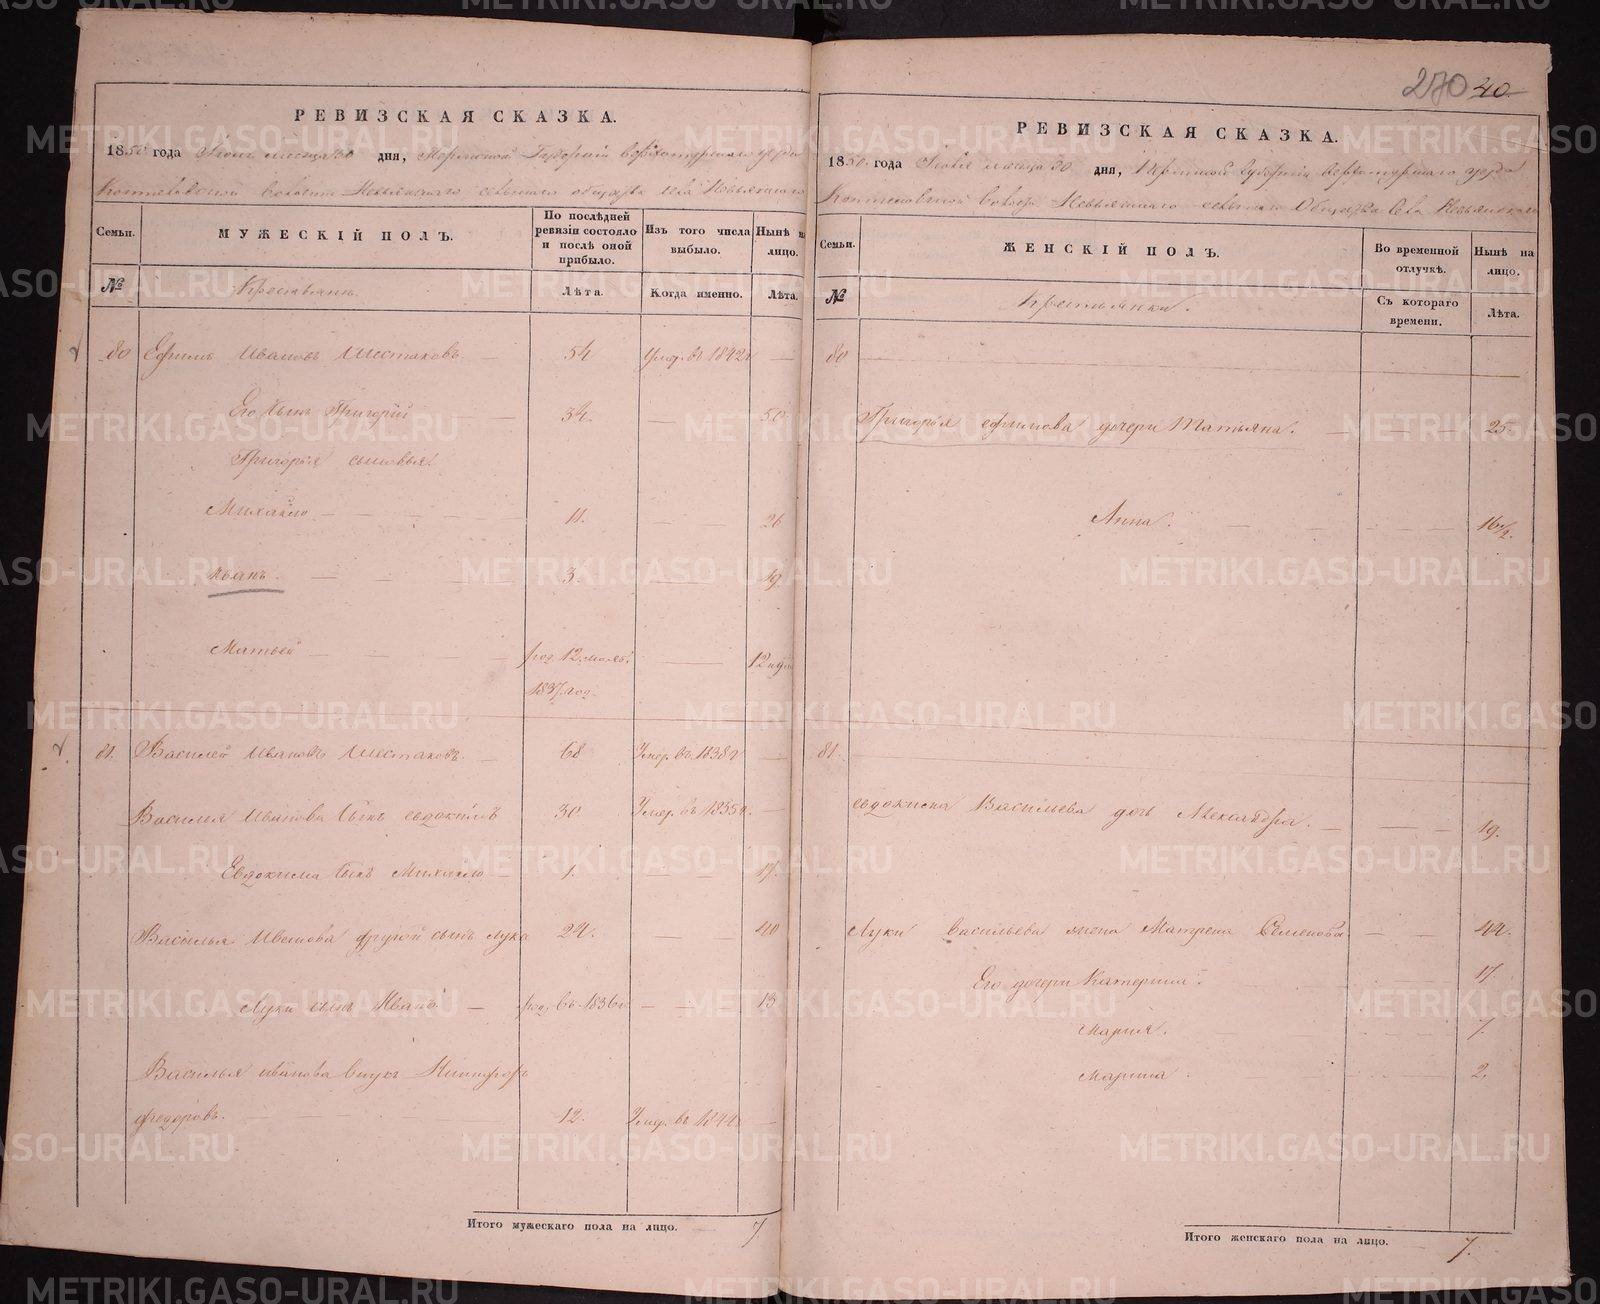 270 40
РЕВИЗСКАЯ СКАЗКА.
1850 года Июня месяца 30 дня, Пермской Губернии Верхотурскаго уезда
волости Невьянскаго сельскаго общества села Невьянскаго
Семьи.
МУЖЕСКІЙ ПОЛЪ.
По послѣдней ревизіи состояло и послѣ оной прибыло.
Изъ того числа выбыло.
Нынѣ на лицо.
№
Крестьяне
Лѣта.
Когда именно.
Лѣта.
80 Ефимъ Ивановъ Шестаковъ — 54 Умер. въ 1842 г —
Его сынъ Григорій — 34 — 50
Григорья сыновья.
Михайло — 11. — 26
Иванъ. — 3. — 19
Матвей — род. 12. 12
1837 год.
81. Василей Ивановъ Шестаковъ. — 68 Умер. въ 1838 г —
Василья Иванова сынъ Евдокимъ 30 Умер. въ 1835 г. —
Евдокима сынъ Михайло — 1. — 17.
Василья Иванова другой сынъ Лука 24. — 40
Луки сынъ Иванъ — род. въ 1836 г. — 13
Василья Иванова внукъ Никифоръ
Федоровъ. — 12. Умер. въ 1844 г —
Итого мужескаго пола на лицо. 7
РЕВИЗСКАЯ СКАЗКА.
1850 года Июня месяца 30 дня, Пермской Губерніи Верхотурскаго уезда
волости Невьянскаго сельскаго Общества Села Невьянскаго
Семьи.
ЖЕНСКІЙ ПОЛЪ.
Во временной отлучкѣ.
Нынѣ на лицо.
№
Крестьянки.
Съ котораго времени.
Лѣта.
80
Григорья Ефимова дочери Татьяна. — 25.
Анна. — 16 1/2.
81.
Евдокима Васильева дочь Александра. — 19.
Луки Васильева жена Матрена Семенова — 44.
Его дочери Катерина. 17
Мария. 7.
Марина. 2.
Итого женскаго пола на лицо. 7.
METRIKI.GASO-URAL.RU